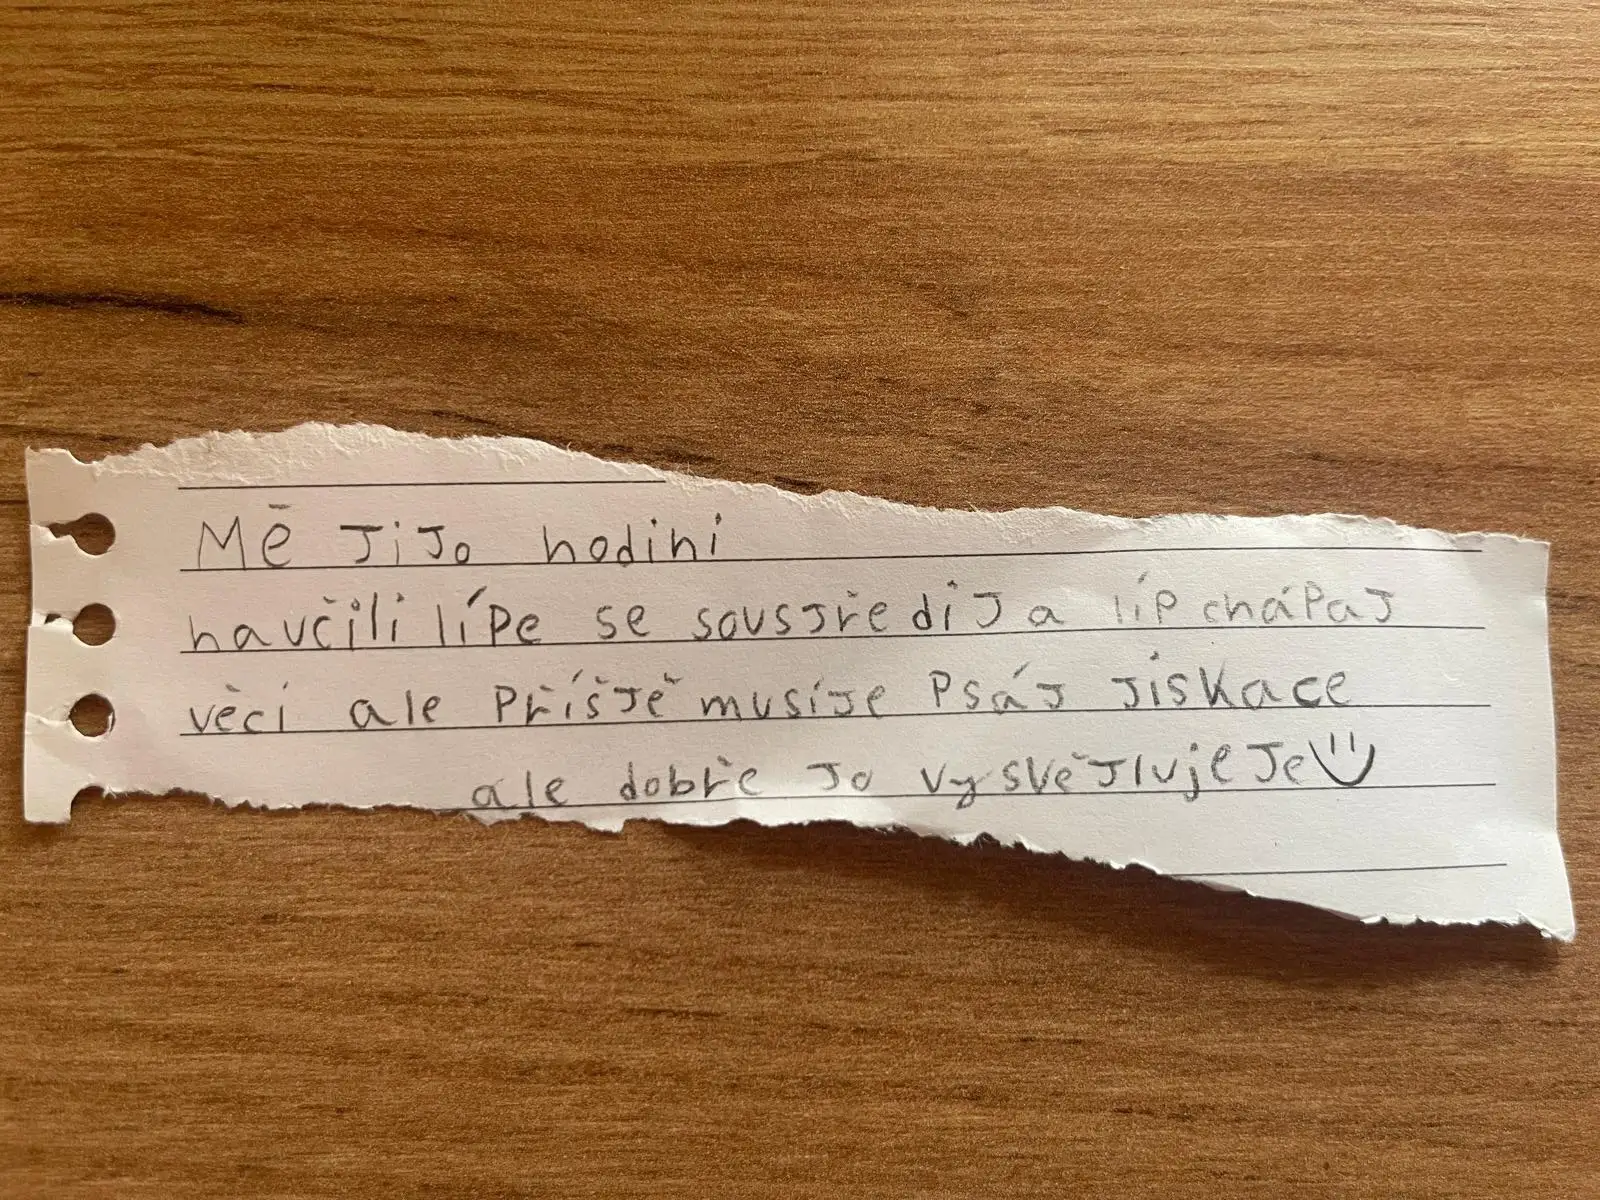 Mě tito hodini
naučili lípe se soustředit a líp chápat
věci ale příště musíte psát tiskace
ale dobře to vysvětlujete